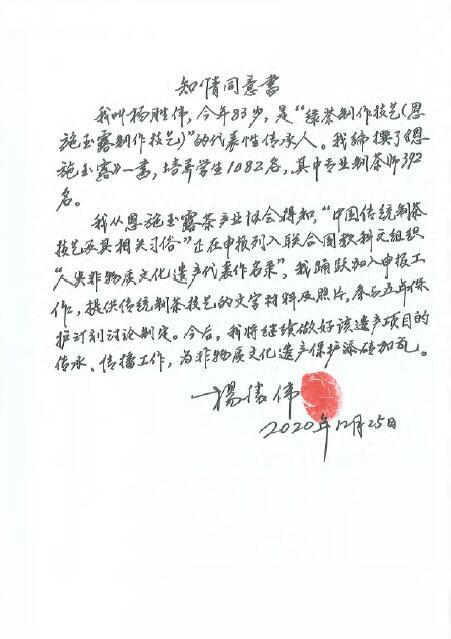 知情同意书
我叫杨胜伟，今年83岁，是“绿茶制作技艺(恩
施玉露制作技艺)”的代表性传承人。我编撰了《恩
施玉露》一书，培养学生1082名，其中专业制茶师392
名。
我从恩施玉露茶产业协会得知，“中国传统制茶
技艺及其相关习俗”正在申报列入联合国教科文组织
“人类非物质文化遗产代表作名录”，我踊跃加入申报工
作，提供传统制茶技艺的文字材料及照片，参与五年保
护计划讨论制定。今后，我将继续做好该遗产项目的
传承、传播工作，为非物质文化遗产保护添砖加瓦。
杨胜伟
2020年12月25日